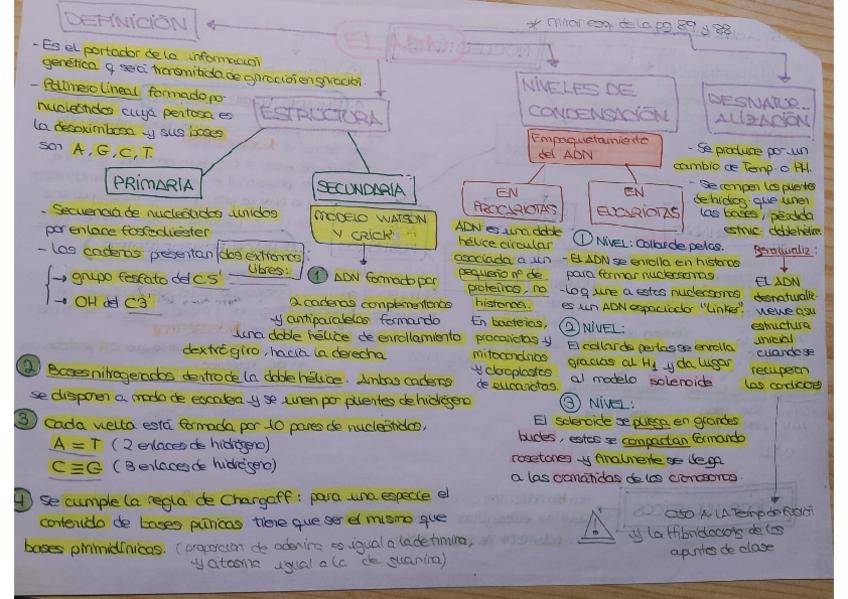 * mirar esq. de la pg 89 y 88
EL ADN
DEFINICIÓN
- Es el portador de la información
genética q será transmitida de gjración en gnración.
- Polímero lineal formado por
nucleótidos cuya pentosa es
la desoxirribosa y sus bases
son A, G, C, T.
ESTRUCTURA
PRIMARIA
- Secuencia de nucleótidos unidos
por enlace fosfodiéster
- Las cadenas presentan dos extremos
libres:
→ grupo fosfato del C5'
→ OH del C3'
SECUNDARIA
MODELO WATSON
Y CRICK
1 ADN formado por
2 cadenas complementarias
y antiparalelas formando
una doble hélice de enrollamiento
dextrógiro, hacia la derecha
2 Bases nitrogenadas dentro de la doble hélice. Ambas cadenas
se disponen a modo de escalera y se unen por puentes de hidrógeno
3 Cada vuelta está formada por 10 pares de nucleótidos,
A = T (2 enlaces de hidrógeno)
C ≡ G (3 enlaces de hidrógeno)
4 Se cumple la regla de Chargaff: para una especie el
contenido de bases púricas tiene que ser el mismo que
bases pirimidínicas. (proporción de adenina es igual a la de timina,
y citosina igual a la de guanina)
NIVELES DE
CONDENSACIÓN
Empaquetamiento
del ADN
EN
PROCARIOTAS
ADN es una doble
hélice circular
asociada a un
pequeño nº de
proteínas, no
histonas.
En bacterias,
procariotas y
mitocondrias
y cloroplastos
de eucariotas.
EN
EUCARIOTAS
1 NIVEL: Collar de perlas.
- El ADN se enrolla en histonas
para formar nucleosomas.
- Lo q une a estos nucleosomas
es un ADN espaciador "linker".
2 NIVEL:
El collar de perlas se enrolla
gracias al H1 y da lugar
al modelo solenoide
3 NIVEL:
El solenoide se pliega en grandes
bucles, estos se compactan formando
rosetones y finalmente se llega
a las cromátidas de los cromosomas.
DESNATUR_
ALIZACIÓN
- Se produce por un
cambio de Temp. o PH.
- Se rompen los puentes
de hidróg. que unen
las bases, pérdida
estruc. doble hélice.
Renaturaliz:
EL ADN
desnaturaliz.
vuelve a su
estructura
inicial
cuando se
recuperan
las condiciones
OJO A LA Temp de Fusión
y la Hibridación de los
apuntes de clase